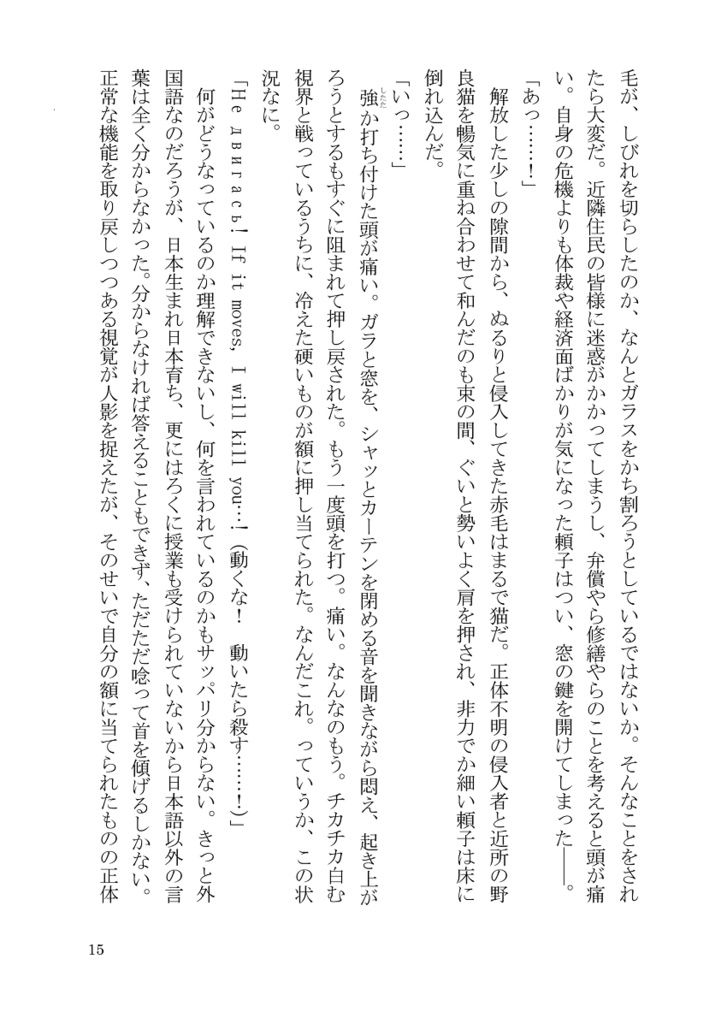 毛が、しびれを切らしたのか、なんとガラスをかち割ろうとしているではないか。そんなことをされ
たら大変だ。近隣住民の皆様に迷惑がかかってしまうし、弁償やら修繕やらのことを考えると頭が痛
い。自身の危機よりも体裁や経済面ばかりが気になった頼子はつい、窓の鍵を開けてしまった――。
「あっ……！」
解放した少しの隙間から、ぬるりと侵入してきた赤毛はまるで猫だ。正体不明の侵入者と近所の野
良猫を暢気に重ね合わせて和んだのも束の間、ぐいと勢いよく肩を押され、非力でか細い頼子は床に
倒れ込んだ。
「いっ……」
強か打ち付けた頭が痛い。ガラと窓を、シャッとカーテンを閉める音を聞きながら悶え、起き上が
したた
ろうとするもすぐに阻まれて押し戻された。もう一度頭を打つ。痛い。なんなのもう。チカチカ白む
視界と戦っているうちに、冷えた硬いものが額に押し当てられた。なんだこれ。っていうか、この状
況なに。
「Не двигась! If it moves, I will kill you…!（動くな！　動いたら殺す……！）」
何がどうなっているのか理解できないし、何を言われているのかもサッパリ分からない。きっと外
国語なのだろうが、日本生まれ日本育ち、更にはろくに授業も受けられていないから日本語以外の言
葉は全く分からなかった。分からなければ答えることもできず、ただただ唸って首を傾げるしかない。
正常な機能を取り戻しつつある視覚が人影を捉えたが、そのせいで自分の額に当てられたものの正体
15